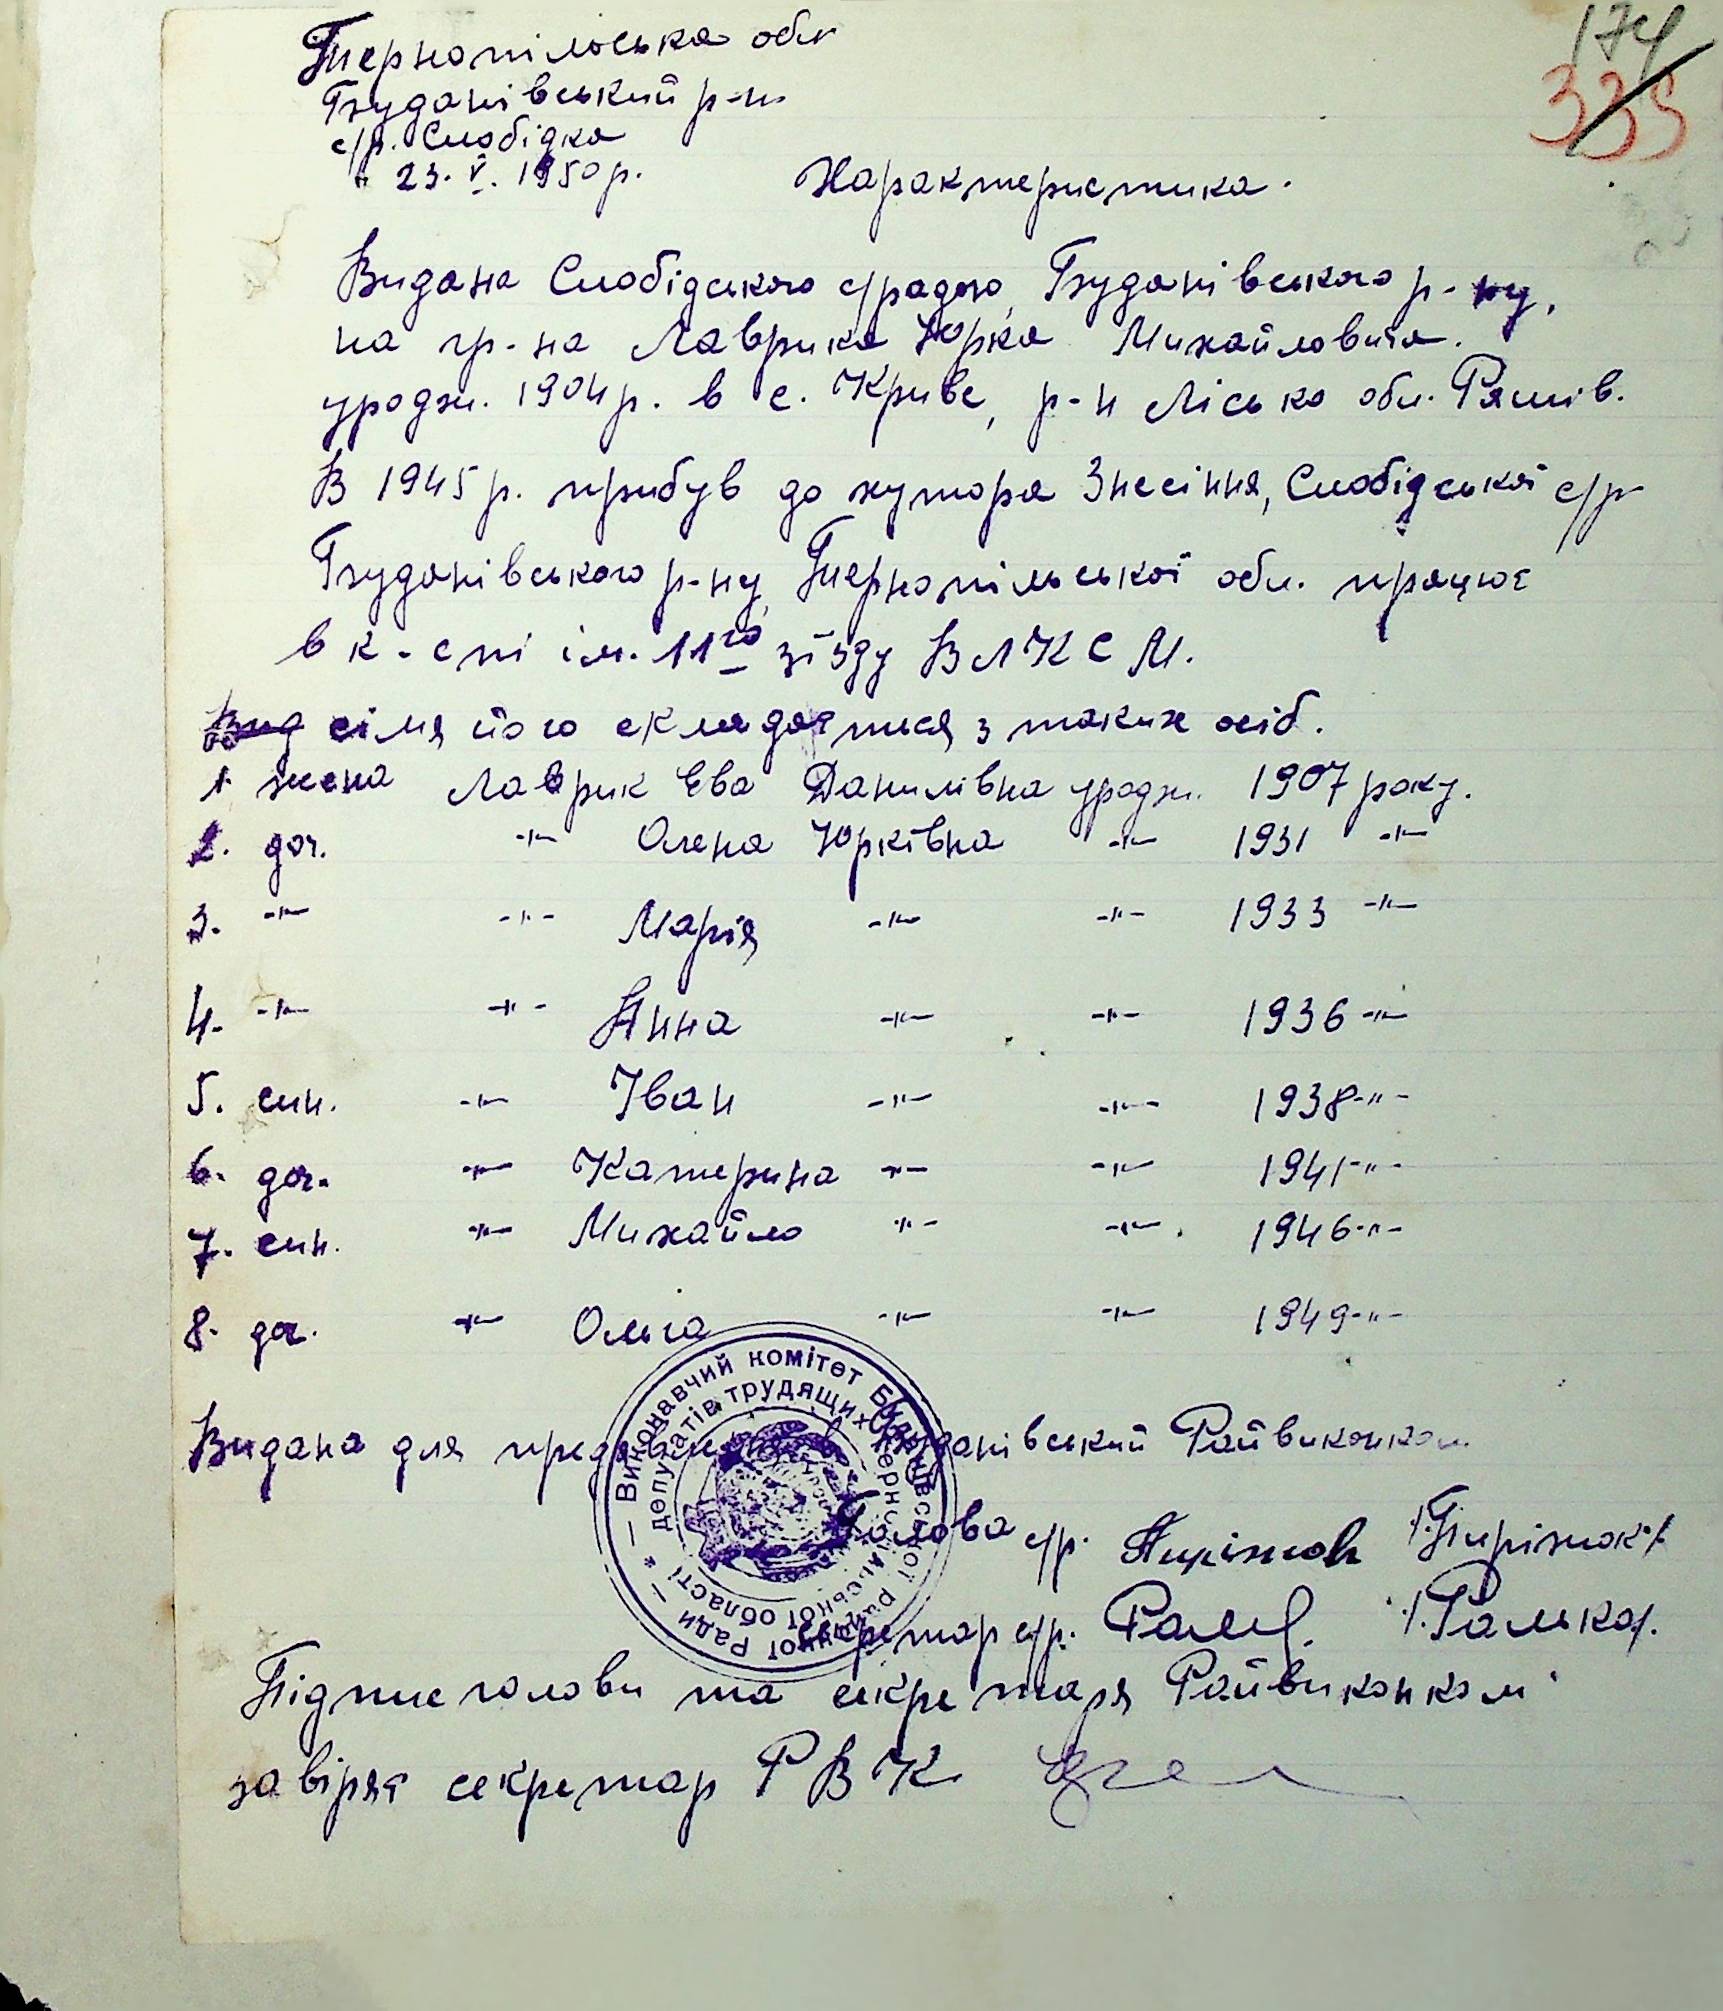 174
335
Тернопільська обл
Буданівський р-н
с/р. Слобідка
23. V. 1950 р.
Характеристика.
Видана Слобідською с/радою, Буданівського р-ну,
на гр-на Лаврика Юрка Михайловича.
уродж. 1904 р. в с. Криве, р-н Лісько обл. Ряшів.
В 1945 р. прибув до хутора Знесіння, Слобідської с/р
Буданівського р-ну, Тернопільської обл. працює
в к-спі ім. 11го зїзду ВЛКСМ.
Вид сімя його складається з таких осіб.
1. жена Лаврик Ева Данилівна уродж. 1907 року.
2. доч. -"- Олена Юрківна -"- 1931 -"-
3. -"- -"- Марія -"- -"- 1933 -"-
4. -"- -"- Анна -"- -"- 1936 -"-
5. син. -"- Іван -"- -"- 1938 -"-
6. доч. -"- Катерина -"- -"- 1941 -"-
7. син. -"- Михайло -"- -"- 1946 -"-
8. доч. -"- Ольга -"- -"- 1949 -"-
Видана для предявлення в Буданівський Райвиконком
Виконавчий комітет Буданівської районної Ради
депутатів трудящих Тернопільської області
Голова с/р. /Пиріжок/
Секретар с/р. /Ралька/.
Підпис голови та секретаря Райвиконком
завіряє секретар РВК